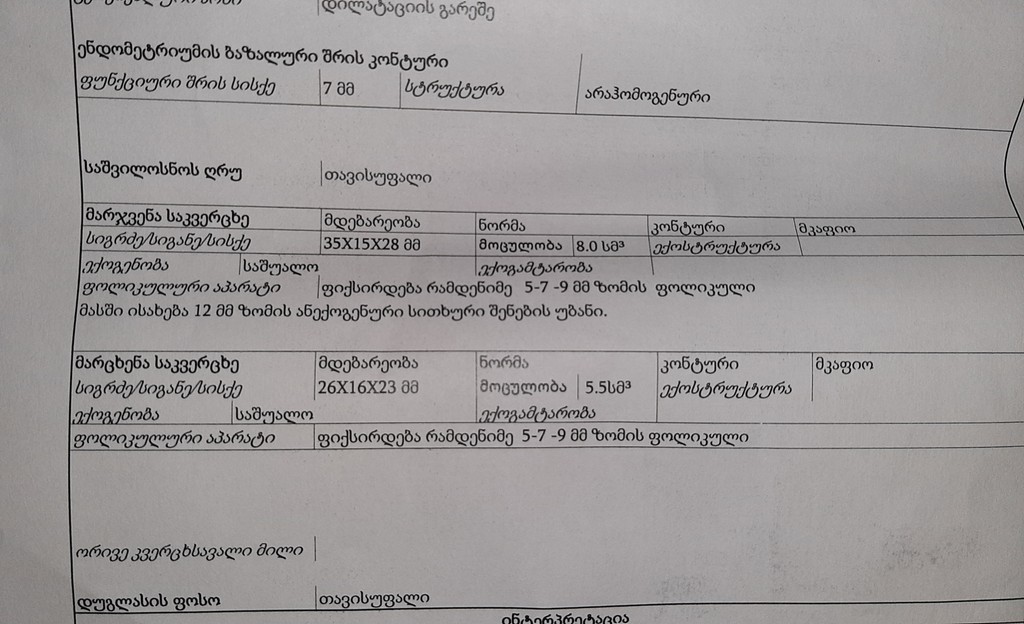 დილატაციის გარეშე
ენდომეტრიუმის ბაზალური შრის კონტური
ფუნქციური შრის სისქე 7 მმ სტრუქტურა არაჰომოგენური
საშვილოსნოს ღრუ თავისუფალი
მარჯვენა საკვერცხე მდებარეობა ნორმა კონტური მკაფიო
სიგრძე/სიგანე/სისქე 35X15X28 მმ მოცულობა 8.0 სმ³ ექოსტრუქტურა
ექოგენობა საშუალო ექოგამტარობა
ფოლიკულური აპარატი ფიქსირდება რამდენიმე 5-7 -9 მმ ზომის ფოლიკული
მასში ისახება 12 მმ ზომის ანექოგენური სითხური შენების უბანი.
მარცხენა საკვერცხე მდებარეობა ნორმა კონტური მკაფიო
სიგრძე/სიგანე/სისქე 26X16X23 მმ მოცულობა 5.5სმ³ ექოსტრუქტურა
ექოგენობა საშუალო ექოგამტარობა
ფოლიკულური აპარატი ფიქსირდება რამდენიმე 5-7 -9 მმ ზომის ფოლიკული
ორივე კვერცხსავალი მილი
დუგლასის ფოსო თავისუფალი
ინტერპრეტაცია